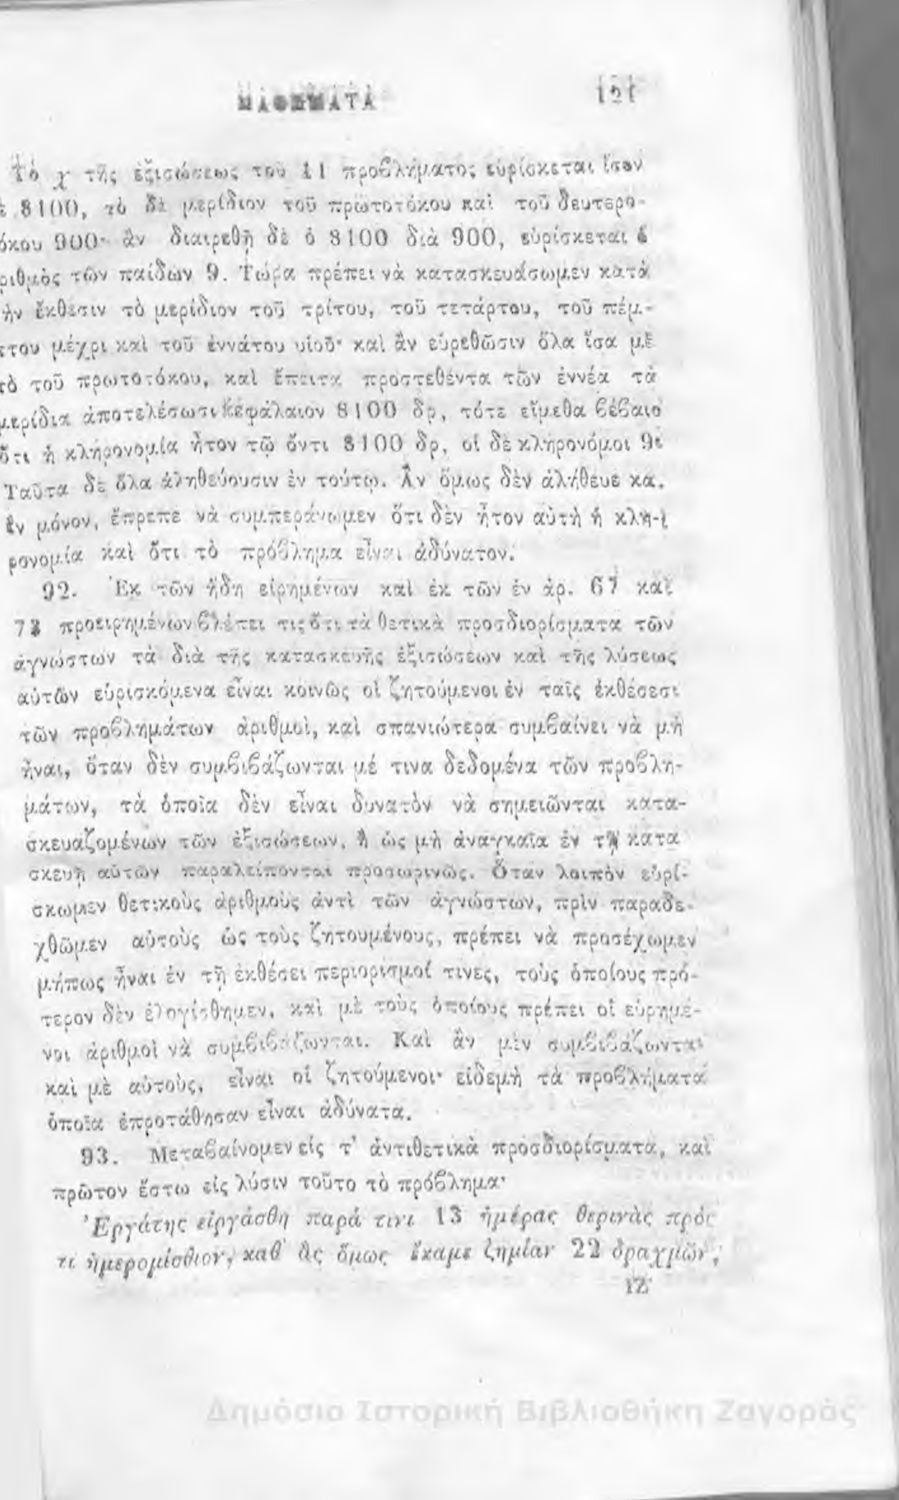 ΜΑΘΗΜΑΤΑ 121
Τὸ χ τῆς ἐξισώσεως τοῦ 11 προβλήματος εὑρίσκεται ἴσον
8100, τὸ δὲ μερίδιον τοῦ πρωτοτόκου καὶ τοῦ δευτερο-
όκου 900· ἂν διαιρεθῇ δὲ ὁ 8100 διὰ 900, εὑρίσκεται ὁ
ριθμὸς τῶν παίδων 9. Τώρα πρέπει νὰ κατασκευάσωμεν κατὰ
ὴν ἔκθεσιν τὸ μερίδιον τοῦ τρίτου, τοῦ τετάρτου, τοῦ πέμ-
πτου μέχρι καὶ τοῦ ἐννάτου υἱοῦ· καὶ ἂν εὑρεθῶσιν ὅλα ἴσα μὲ
τὸ τοῦ πρωτοτόκου, καὶ ἔπειτα προστεθέντα τῶν ἐννέα τὰ
μερίδια ἀποτελέσωσι κεφάλαιον 8100 δρ, τότε εἴμεθα βέβαιο
ὅτι ἡ κληρονομία ἦτον τῷ ὄντι 8100 δρ, οἱ δὲ κληρονόμοι 9·
Ταῦτα δὲ ὅλα ἀληθεύουσιν ἐν τούτῳ. Ἂν ὅμως δὲν ἀλήθευε κα.
ἓν μόνον, ἔπρεπε νὰ συμπεράνωμεν ὅτι δὲν ἦτον αὐτὴ ἡ κλη-
ρονομία καὶ ὅτι τὸ πρόβλημα εἶναι ἀδύνατον.
92. Ἐκ τῶν ἤδη εἰρημένων καὶ ἐκ τῶν ἐν ἀρ. 67 καὶ
73 προειρημένων βλέπει τις ὅτι τὰ θετικὰ προσδιορίσματα τῶν
ἀγνώστων τὰ διὰ τῆς κατασκευῆς ἐξισώσεων καὶ τῆς λύσεως
αὐτῶν εὑρισκόμενα εἶναι κοινῶς οἱ ζητούμενοι ἐν ταῖς ἐκθέσεσι
τῶν προβλημάτων ἀριθμοὶ, καὶ σπανιώτερα συμβαίνει νὰ μὴ
ἦναι, ὅταν δὲν συμβιβάζωνται μέ τινα δεδομένα τῶν προβλη-
μάτων, τὰ ὁποῖα δὲν εἶναι δυνατὸν νὰ σημειῶνται κατα-
σκευαζομένων τῶν ἐξισώσεων, ἢ ὡς μὴ ἀναγκαῖα ἐν τῇ κατα
σκευῇ αὐτῶν παραλείπονται προσωρινῶς. Ὅταν λοιπὸν εὑρί-
σκωμεν θετικοὺς ἀριθμοὺς ἀντὶ τῶν ἀγνώστων, πρὶν παραδε-
χθῶμεν αὐτοὺς ὡς τοὺς ζητουμένους, πρέπει νὰ προσέχωμεν
μήπως ἦναι ἐν τῇ ἐκθέσει περιορισμοί τινες, τοὺς ὁποίους πρό-
τερον δὲν ἐλογίσθημεν, καὶ μὲ τοὺς ὁποίους πρέπει οἱ εὑρημέ-
νοι ἀριθμοὶ νὰ συμβιβάζωνται. Καὶ ἂν μὲν συμβιβάζωνται
καὶ μὲ αὐτοὺς, εἶναι οἱ ζητούμενοι· εἰδεμὴ τὰ προβλήματα
ὁποῖα ἐπροτάθησαν εἶναι ἀδύνατα.
93. Μεταβαίνομεν εἰς τ' ἀντιθετικὰ προσδιορίσματα, καὶ
πρῶτον ἔστω εἰς λύσιν τοῦτο τὸ πρόβλημα·
Ἐργάτης εἰργάσθη παρά τινι 13 ἡμέρας θερινὰς πρός
τι ἡμερομίσθιον, καθ' ἃς ὅμως ἔκαμε ζημίαν 22 δραχμῶν,
ΙΖ
Δημόσια Ιστορική Βιβλιοθήκη Ζαγοράς